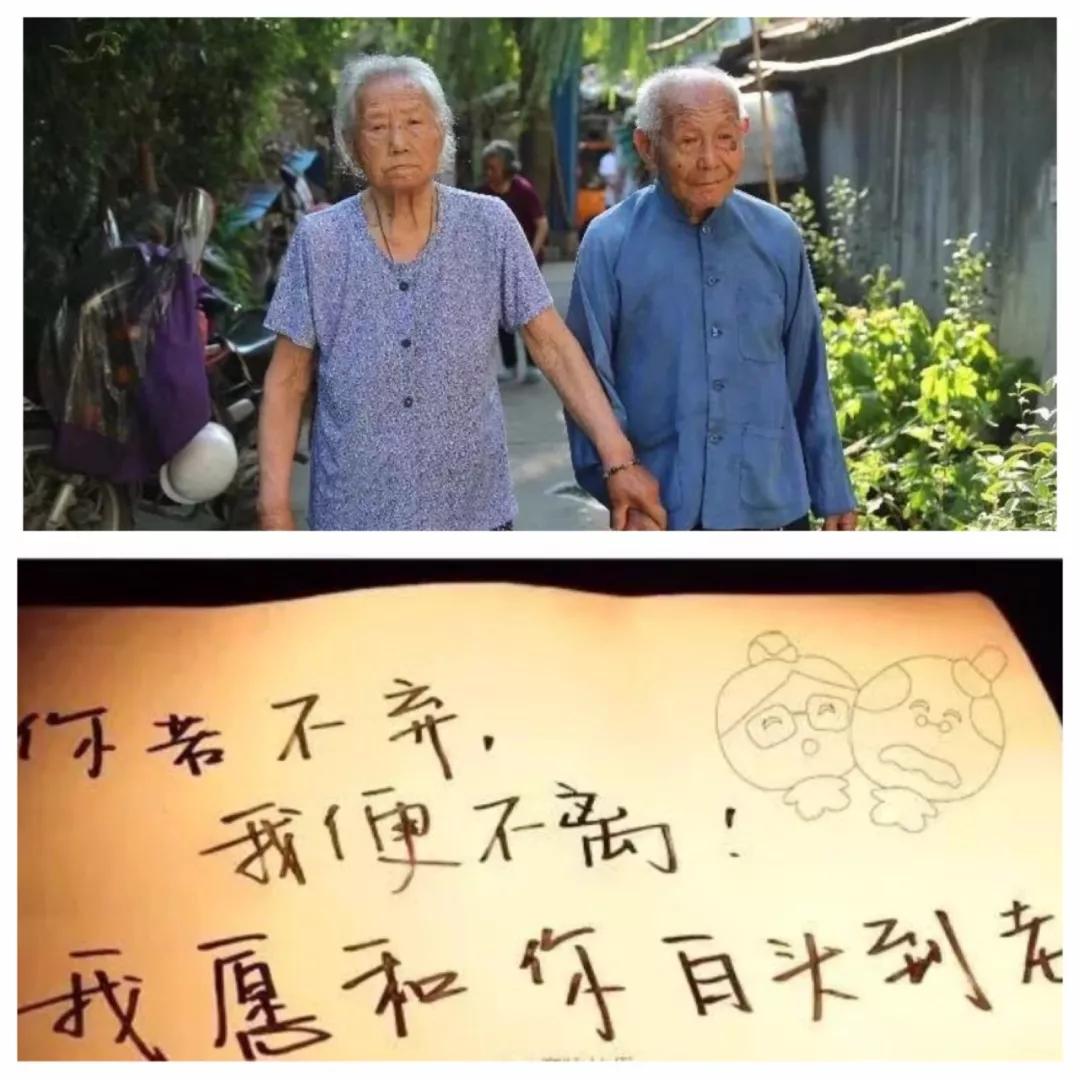 你若不弃,
我便不离!
我愿和你白头到老